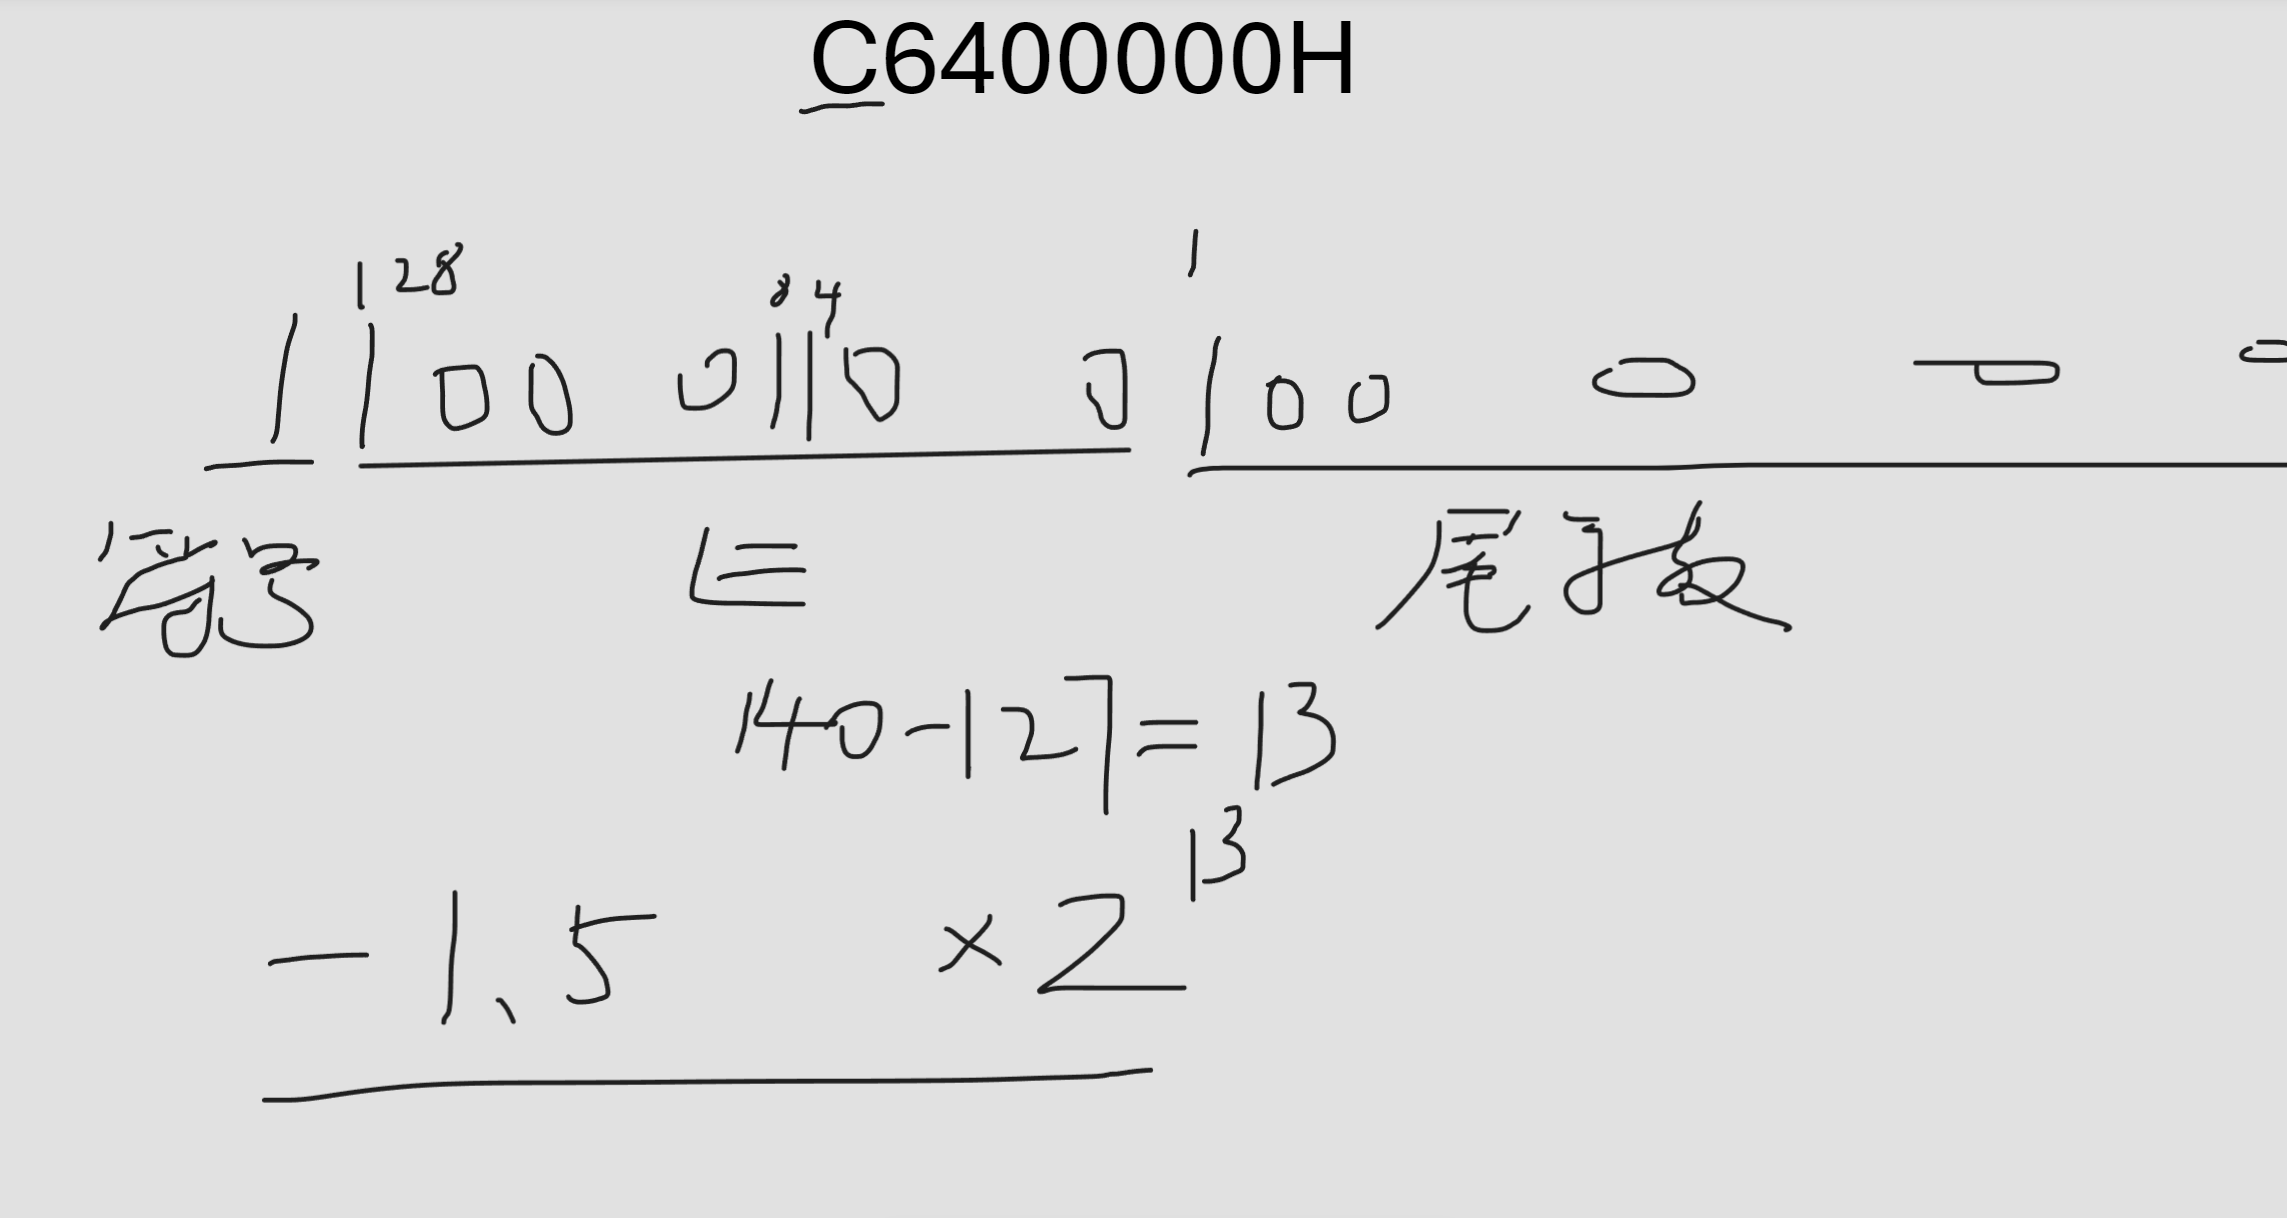 C6400000H
128 84 1
1 100 0110 0 100 0 0 0
符号 E 尾数
140-127=13
-1.5 × 2^13